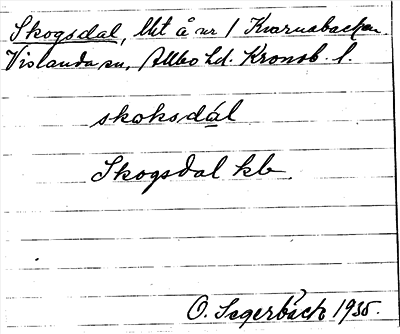 Skogsdal, lht å nr 1 Kvarnabacken
Vislanda sn, Allbo hd. Kronob. l.
skoksdál
Skogsdal kb.
O. Sagerbäck 1935.